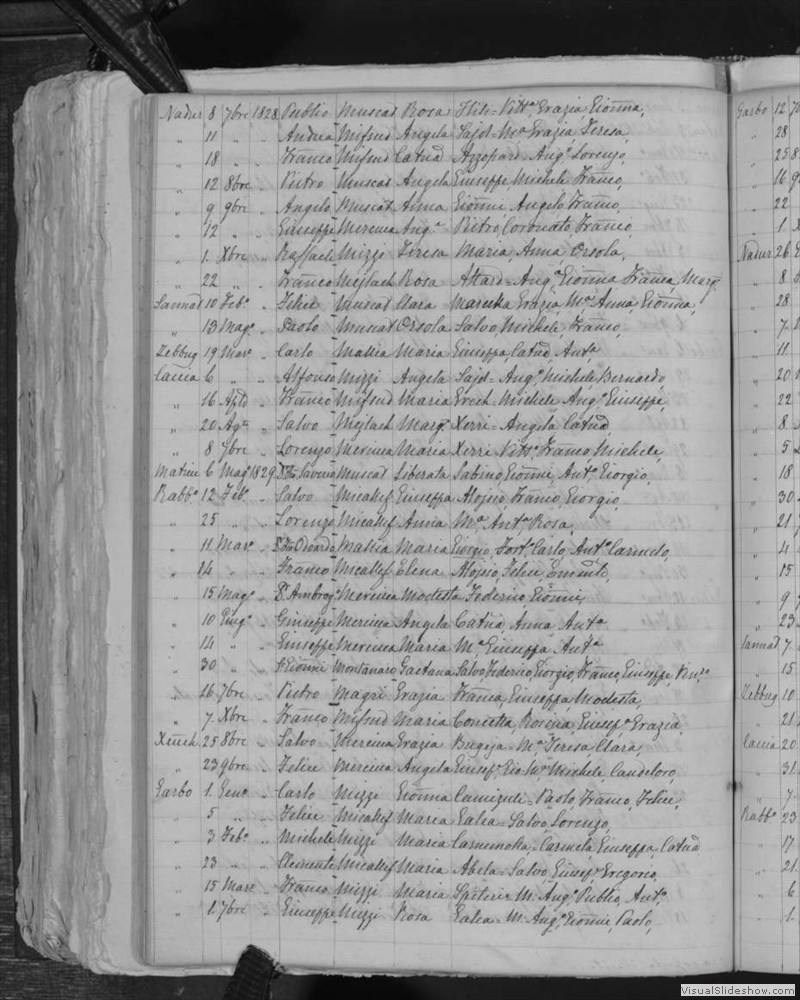 Nadur 8 7bre 1828 Publio Muscat Rosa Vitta Grazia, Gionna,
" 11 " " Andrea Mifsud Angela Ma Grazia Teresa,
" 18 " " Franco Mifsud Catna Azzopardi Anga Lorenzo,
" 12 8bre " Pietro Muscat Angela Giuseppe Michele Franco,
" 9 9bre " Angelo Muscat Anna Gionni Angelo Franco,
" 12 " " Giuseppe Mercieca Anga Pietro Coronato, Franco,
" 1 Xbre " Raffaele Mizzi Teresa Maria, Anna, Orsola,
" 22 " " Franco Mejlach Rosa Attard Anga, Gionna Franca Marg
Sannat 10 Febo " Felice Muscat Clara Grazia, Ma Anna, Gionna,
" 13 Mago " Paolo Muscat Orsola Salvo, Michele Franco,
Zebbug 19 Maro " Carlo Mallia Maria Giuseppa, Catna, Anta
Caccia 6 " " Alfonso Mizzi Angela Ango, Michele Bernardo,
" 16 " Franco Mifsud Maria Michele Ango Giuseppe,
" 20 " Salvo Mejlach Marga Xerri Angela Catna
" 8 7bre " Lorenzo Mercieca Maria Xerri Vitto, Franco Michele,
6 Mago 1829 Saverio Muscat Liberata Sabino, Gionni, Anto Giorgio,
Rabbo 12 Febo " Salvo Micallef Giuseppa Aloisio, Franco, Giorgio,
" 25 " " Lorenzo Micallef Anna Ma Anta Rosa,
" 11 Maro " Odoardo Mallia Maria Giorgio, Forto, Carlo, Anto Carmelo,
" 14 " " Franco Micallef Elena Aloisio, Felice,
" 15 Mago " Ambrog Mercieca Modesta Federico Gionni,
" 10 Giugo " Giuseppe Mercieca Angela Catna Anna Anta
" 14 " " Giuseppe Mercieca Maria Ma Giuseppa Anta
" 30 " " Gionni Montanaro Gaetana Salvo, Federico, Giorgio, Franco, Giuseppe,
" 16 7bre " Pietro Magri Grazia Franca, Giuseppa, Modesta,
" 7 Xbre " Franco Mifsud Maria Concetta, Rosina, Giusepa Grazia,
25 8bre " Salvo Mercieca Grazia Bugeja Ma Teresa Clara,
" 23 9bre " Felice Mercieca Angela Michele Candeloro,
Garbo 1 Geno " Carlo Mizzi Gionna Paolo, Franco, Felice,
" 5 " " Felice Micallef Maria Galea Salvo, Lorenzo,
" 3 Febo " Michele Mizzi Maria Carmela, Giuseppa, Catna
" 23 " " Clemente Micallef Maria Abela Salvo, Giusepe Gregorio,
" 15 Maro " Franco Mizzi Maria Spiteri M. Ango Publio, Anto
" 1 7bre " Giuseppe Mizzi Rosa Galea M. Ango, Gionni, Paolo,
Garbo 12
" 28
" 25
" 16
" 22
" 1
Nadur 26
" 8
" 28
" 7
" 11
" 20
" 22
" 8
" 5
" 18
" 30
" 21
" 4
" 15
" 9
" 23
Sannat 7
" 15
Zebbug 10
" 21
Caccia 20
" 31
" 7
Rabbo 23
" 17
" 21
" 6
" 1
VisualSlideshow.com